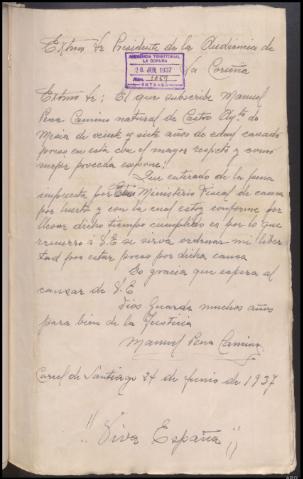 Exmo Sr Presidente de la Audiencia de
La Coruña
AUDIENCIA TERRITORIAL
LA CORUÑA
28 JUN. 1937
Núm. 1859
ENTRADA
Exmo Sr: El que subscribe Manuel
Pena Camino natural de Castro Ayto de
Mesia de veinte y siete años de edad casado
preso en esta con el mayor respeto y como
mejor proceda expone:
Que enterado de la pena
impuesta por Ministerio Fiscal de causa
por hurto y con la cual estoy conforme por
llevar dicho tiempo cumplido es por lo que
recurro á V.E se sirva ordenar mi liber
tad por estar preso por dicha causa
Es gracia que espera al
canzar de V.E
Dios Guarde muchos años
para bien de la Justicia
Manuel Pena Camino
Carcel de Santiago 24 de Junio de 1937
"Viva España"